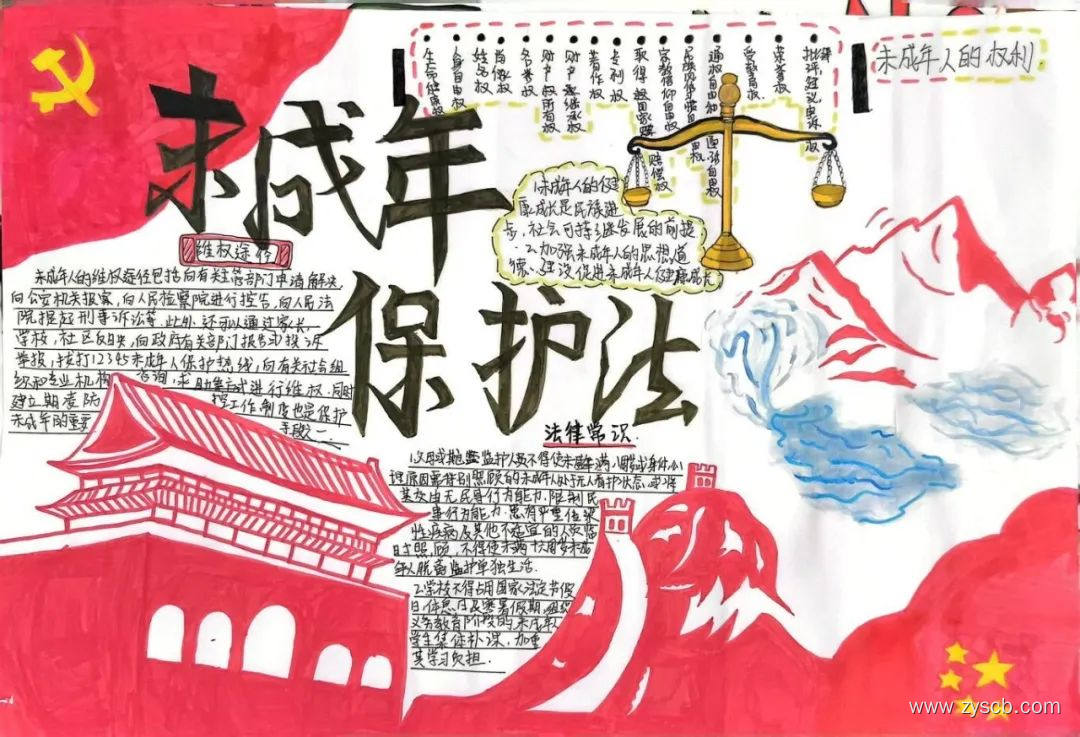 未成年
保护法
未成年人的权利
生命健康权
人身自由权
姓名权
肖像权
名誉权
财产权所有权
财产继承权
著作权
专利权
取得国家赔偿权
宗教信仰自由权
受教育权
荣誉权
批评建议申诉权
1.未成年人的健
康成长是民族进
步、社会可持续发展的前提
2.加强未成年人的思想道
德、建设促进未成年人健康成长
维权途径
未成年人的维权途径包括向有关主管部门申请解决,
向公安机关报案,向人民检察院进行控告,向人民法
院提起刑事诉讼等。此外还可以通过家长、
学校,社区反映,向政府有关部门报告或投诉
举报,拨打12345未成年人保护热线,向有关社会组
织和专业机构咨询、求助等方式进行维权,同时
建立期委防 控工作制度也是保护
未成年的重要
手段之一.
法律常识.
1.父母或其他监护人不得使未成年满八周岁或身体心
理原因需特别照顾的未成年人处于无人看护状态,或将
其交由无民事行为能力、限制民
事行为能力、患有严重传染
性疾病及其他不适宜的人员临
时照顾,不得使未满十六周岁未成
年人脱离监护单独生活.
2.学校不得占用国家法定节假
日、休息日及寒暑假期,组织
义务教育阶段的未成年人
学生集体补课,加重
其学习负担.
www.zyscb.com